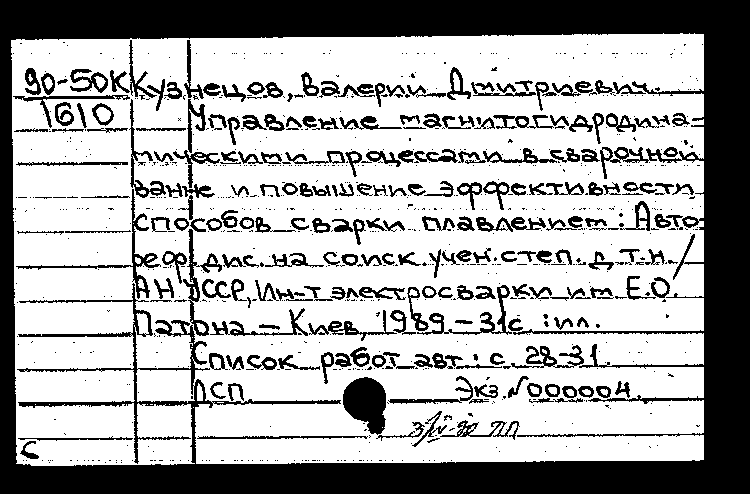 90-50К Кузнецов, Валерий Дмитриевич.
1610 Управление магнитогидродина-
мическими процессами в сварочной
ванне и повышение эффективности
способов сварки плавлением: Авто-
реф. дис. на соиск. учен. степ. д.т.н. /
АН УССР, Ин-т электросварки им. Е.О.
Патона. - Киев, 1989. - 31с. : ил.
Список работ авт.: с. 28-31.
ДСП. Экз. №000004.
3/IV-90 ПП
С